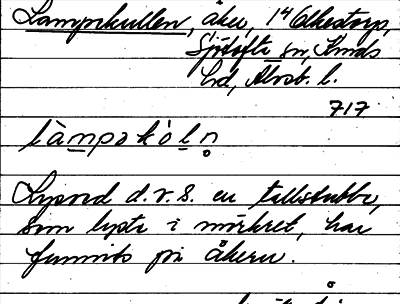 Lampekullen, åker, 1⁴ Olhestorp,
Sjötofta sn, Kinds
hd, Älvsb. l.
717
làmpəkòln̥
Lysved d.v.s. en tallstubbe,
som lyste i mörkret, har
funnits på åkern.